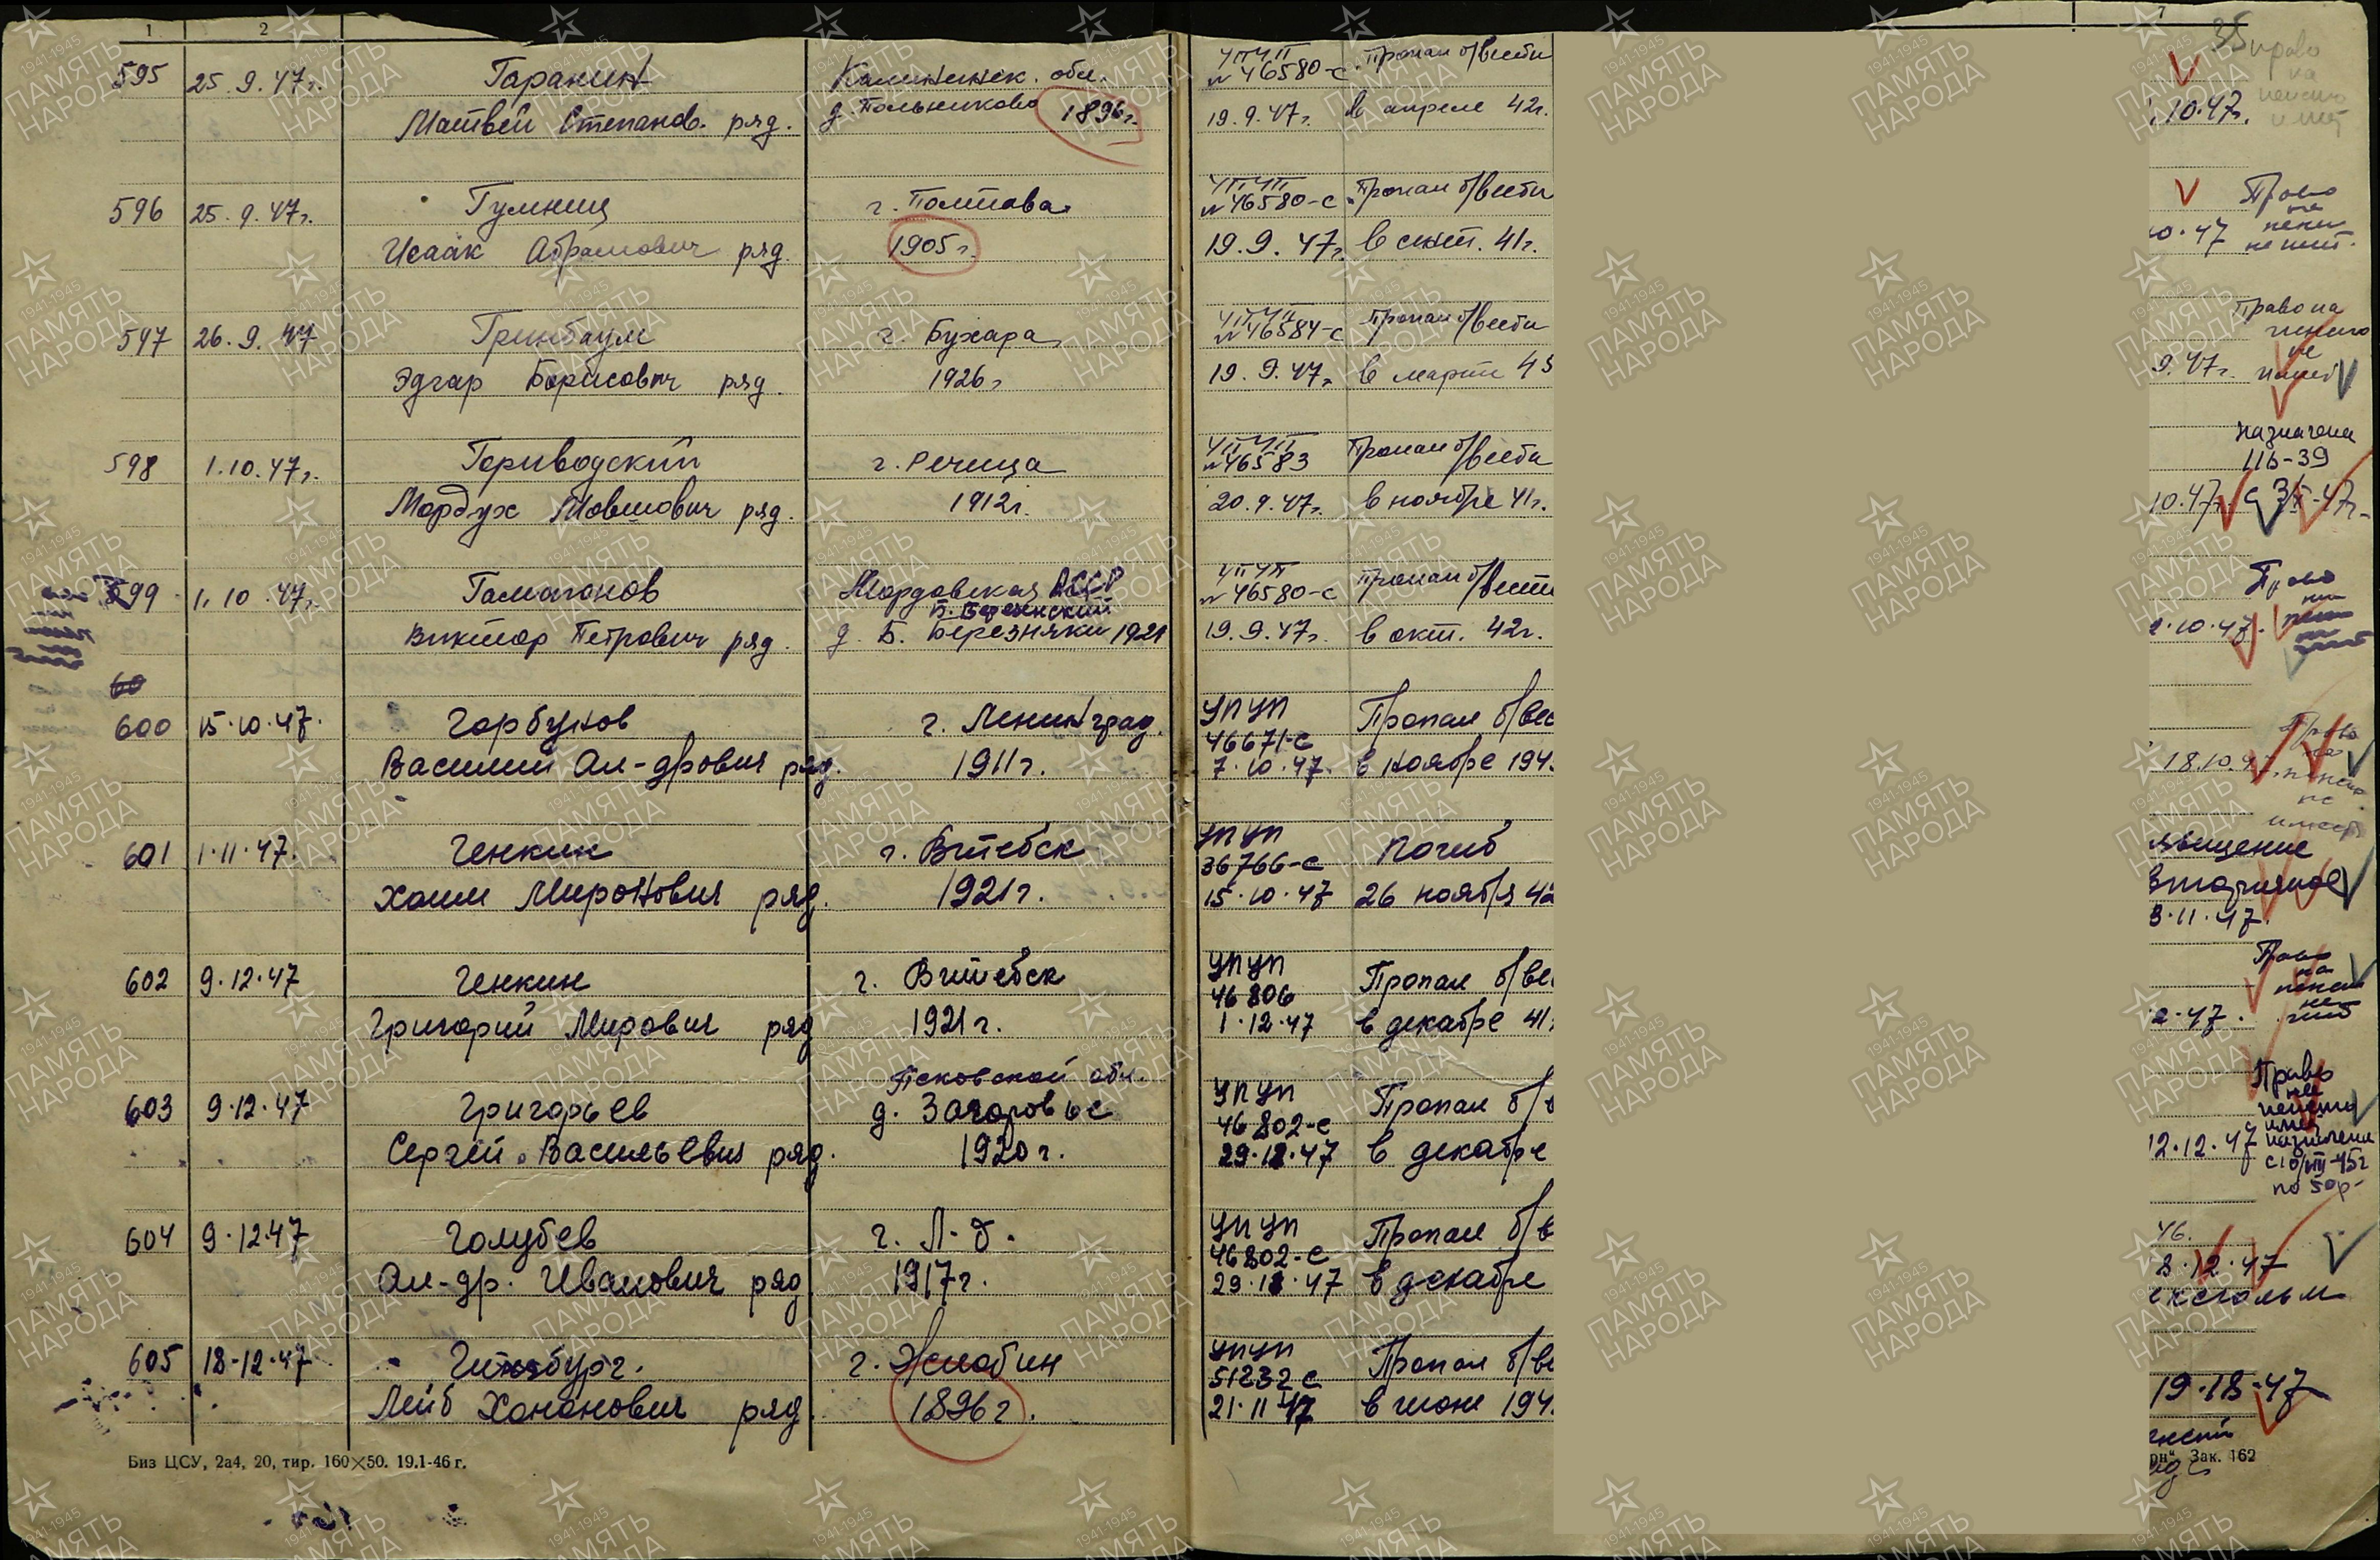 1 2 7
35 право
на
пенсию
имеет
595 25.9.47г. Гаранин Калининск. обл. УПУП Пропал б/вести
№46580-с
Матвей Степанов. ряд. д. Польниково 1896г. 19.9.47г. в апреле 42г. 10.47г.
596 25.9.47г. Гумниц г. Полтава УПУП Пропал б/вести Право
№46580-с на
Исаак Абрамович ряд. 1905г. 19.9.47г. в сент. 41г. 10.47
597 26.9.47 Гринбаум г. Бухара УПУП Пропал б/вести Право на
№46584-с
Эдгар Борисович ряд. 1926г 19.9.47г. в марте 43 9.47г. не
598 1.10.47г. Г г. Речица УПУП Пропал б/вести Назначена
№46583 116-39
Мордух Мовшович ряд. 1912г. 20.9.47г. в ноябре 41г. 10.47г.
599 1.10.47г. Гамагонов Мордовская АССР УПУП Пропал б/вести Право
Б. Березнский №46580-с
Виктор Петрович ряд. д. Б. Березняки 1921 19.9.47г. в окт. 42г. 2.10.47.
60
600 15.10.47. Горбунов г. Ленинград. УПУП Пропал б/вес Право
46671-с на
Василий Ал-дрович ряд. 1911г. 7.10.47. в ноябре 194 18.10.4
не
имеет
601 1.11.47. Генкин г. Витебск УПУП Погиб явещение
36766-с Вторичное
Хаим Миронович ряд. 1921г. 15.10.47 26 ноября 42 3.11.47.
602 9.12.47 Генкин г. Витебск УПУП Пропал б/ве Право
46806 на
Григорий Мирович ряд 1921г. 1.12.47 в декабре 41 2.47.
Псковской обл.
603 9.12.47 Григорьев д. Загоровье УПУП Пропал б/в Право
46802-с на
Сергей Васильевич ряд. 1920г. 29.12.47 в декабре 12.12.47 назначена
по 50р-
604 9.12.47 Голубев г. Л-д. УПУП Пропал б/в 46.
46802-с 8.12.47
Ал-др. Иванович ряд 1917г. 29.12.47 в декабре ексгольм
605 18-12.47 Гинзбург. г. Жлобин УПУП Пропал б/ве
51232с
Лейб Хононович ряд. 1896г. 21.11.47 в июне 194 19.12.47
Биз ЦСУ, 2а4, 20, тир. 160×50. 19.1-46 г. Зак. 162
1941-1945
ПАМЯТЬ
НАРОДА